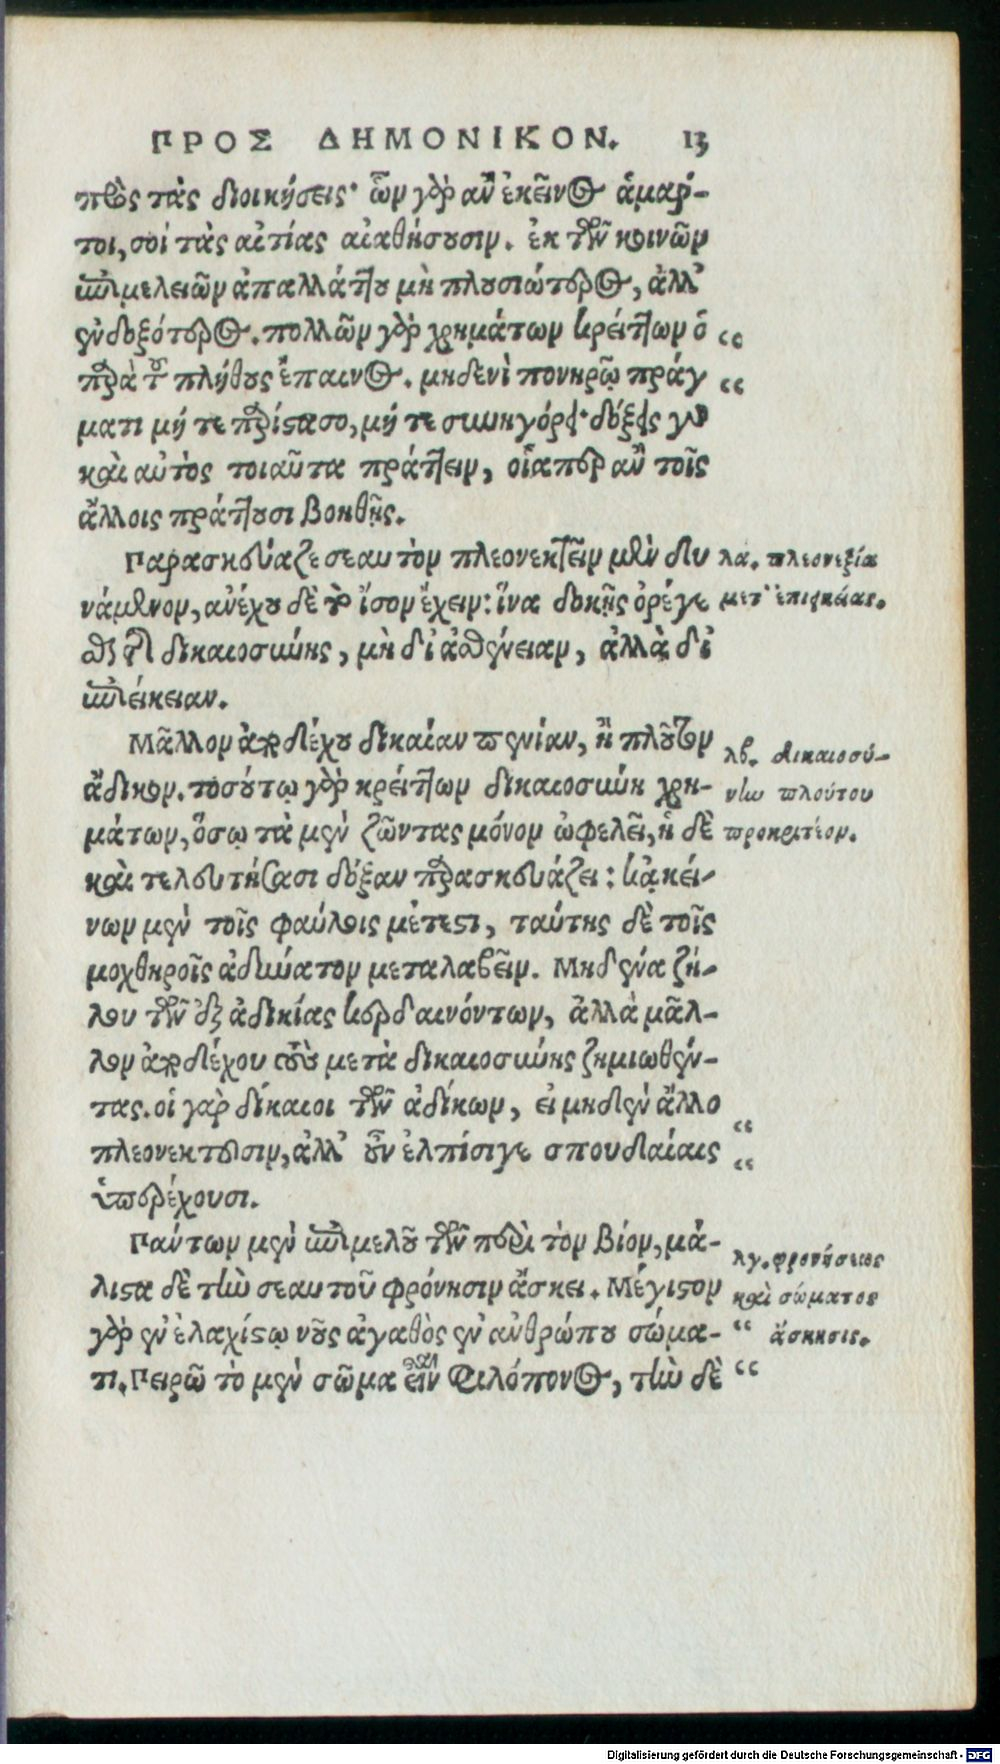 ΠΡΟΣ ΔΗΜΟΝΙΚΟΝ. 13
πρὸς τὰς διοικήσεις· ὧν γὸρ ἂν ἐκεῖνος ἁμάρ-
τοι, σοὶ τὰς αἰτίας ἀναθήσουσιν. ἐκ τῶν κοινῶν
ἐπιμελειῶν ἀπαλλάττου μὴ πλουσιώτερος, ἀλλ'
ἐνδοξότερος. πολλῶν γὰρ χρημάτων κρείττων ὁ “
παρὰ τοῦ πλήθους ἔπαινος. μηδενὶ πονηρῷ πράγ “
ματι μή τε παρίστασο, μή τε συνηγόρει· δόξεις γὰρ
καὶ αὐτὸς τοιαῦτα πράττειν, οἷάπερ ἂν τοῖς
ἄλλοις πράττουσι βοηθῇς.
Παρασκεύαζε σεαυτὸν πλεονεκτεῖν μὲν δυ
λα. πλεονεξία
νάμενον, ἀνέχου δὲ τὸ ἴσον ἔχειν: ἵνα δοκῇς ὀρέγε
μετ' ἐπιεικείας.
σθαι τῆς δικαιοσύνης, μὴ δι' ἀσθένειαν, ἀλλὰ δι'
ἐπιείκειαν.
Μᾶλλον ἀποδέχου δικαίαν πενίαν, ἢ πλοῦτον
λβ. δικαιοσύ-
ἄδικον. τοσούτῳ γὰρ κρείττων δικαιοσύνη χρη-
νην πλούτου
μάτων, ὅσῳ τὰ μὲν ζῶντας μόνον ὠφελεῖ, ἡ δὲ
προκριτέον.
καὶ τελευτήσασι δόξαν παρασκευάζει: κἀκεί-
νων μὲν τοῖς φαύλοις μέτεστι, ταύτης δὲ τοῖς
μοχθηροῖς ἀδύνατον μεταλαβεῖν. Μηδένα ζή-
λου τῶν ἐξ ἀδικίας κερδαινόντων, ἀλλὰ μᾶλ-
λον ἀποδέχου τοὺς μετὰ δικαιοσύνης ζημιωθέν-
τας. οἱ γὰρ δίκαιοι τῶν ἀδίκων, εἰ μηδὲν ἄλλο “
πλεονεκτοῦσιν, ἀλλ' οὖν ἐλπίσιγε σπουδαίαις “
ὑπερέχουσι.
Πάντων μὲν ἐπιμελοῦ τῶν περὶ τὸν βίον, μά-
λγ. φρονήσεως
λιστα δὲ τὴν σεαυτοῦ φρόνησιν ἄσκει. Μέγιστον
καὶ σώματος
γὰρ ἐν ἐλαχίστῳ νοῦς ἀγαθὸς ἐν ἀνθρώπου σώμα- “
ἄσκησις.
τι. Πειρῶ τὸ μὲν σῶμα εἶναι φιλόπονος, τὴν δὲ “
Digitalisierung gefördert durch die Deutsche Forschungsgemeinschaft - DFG